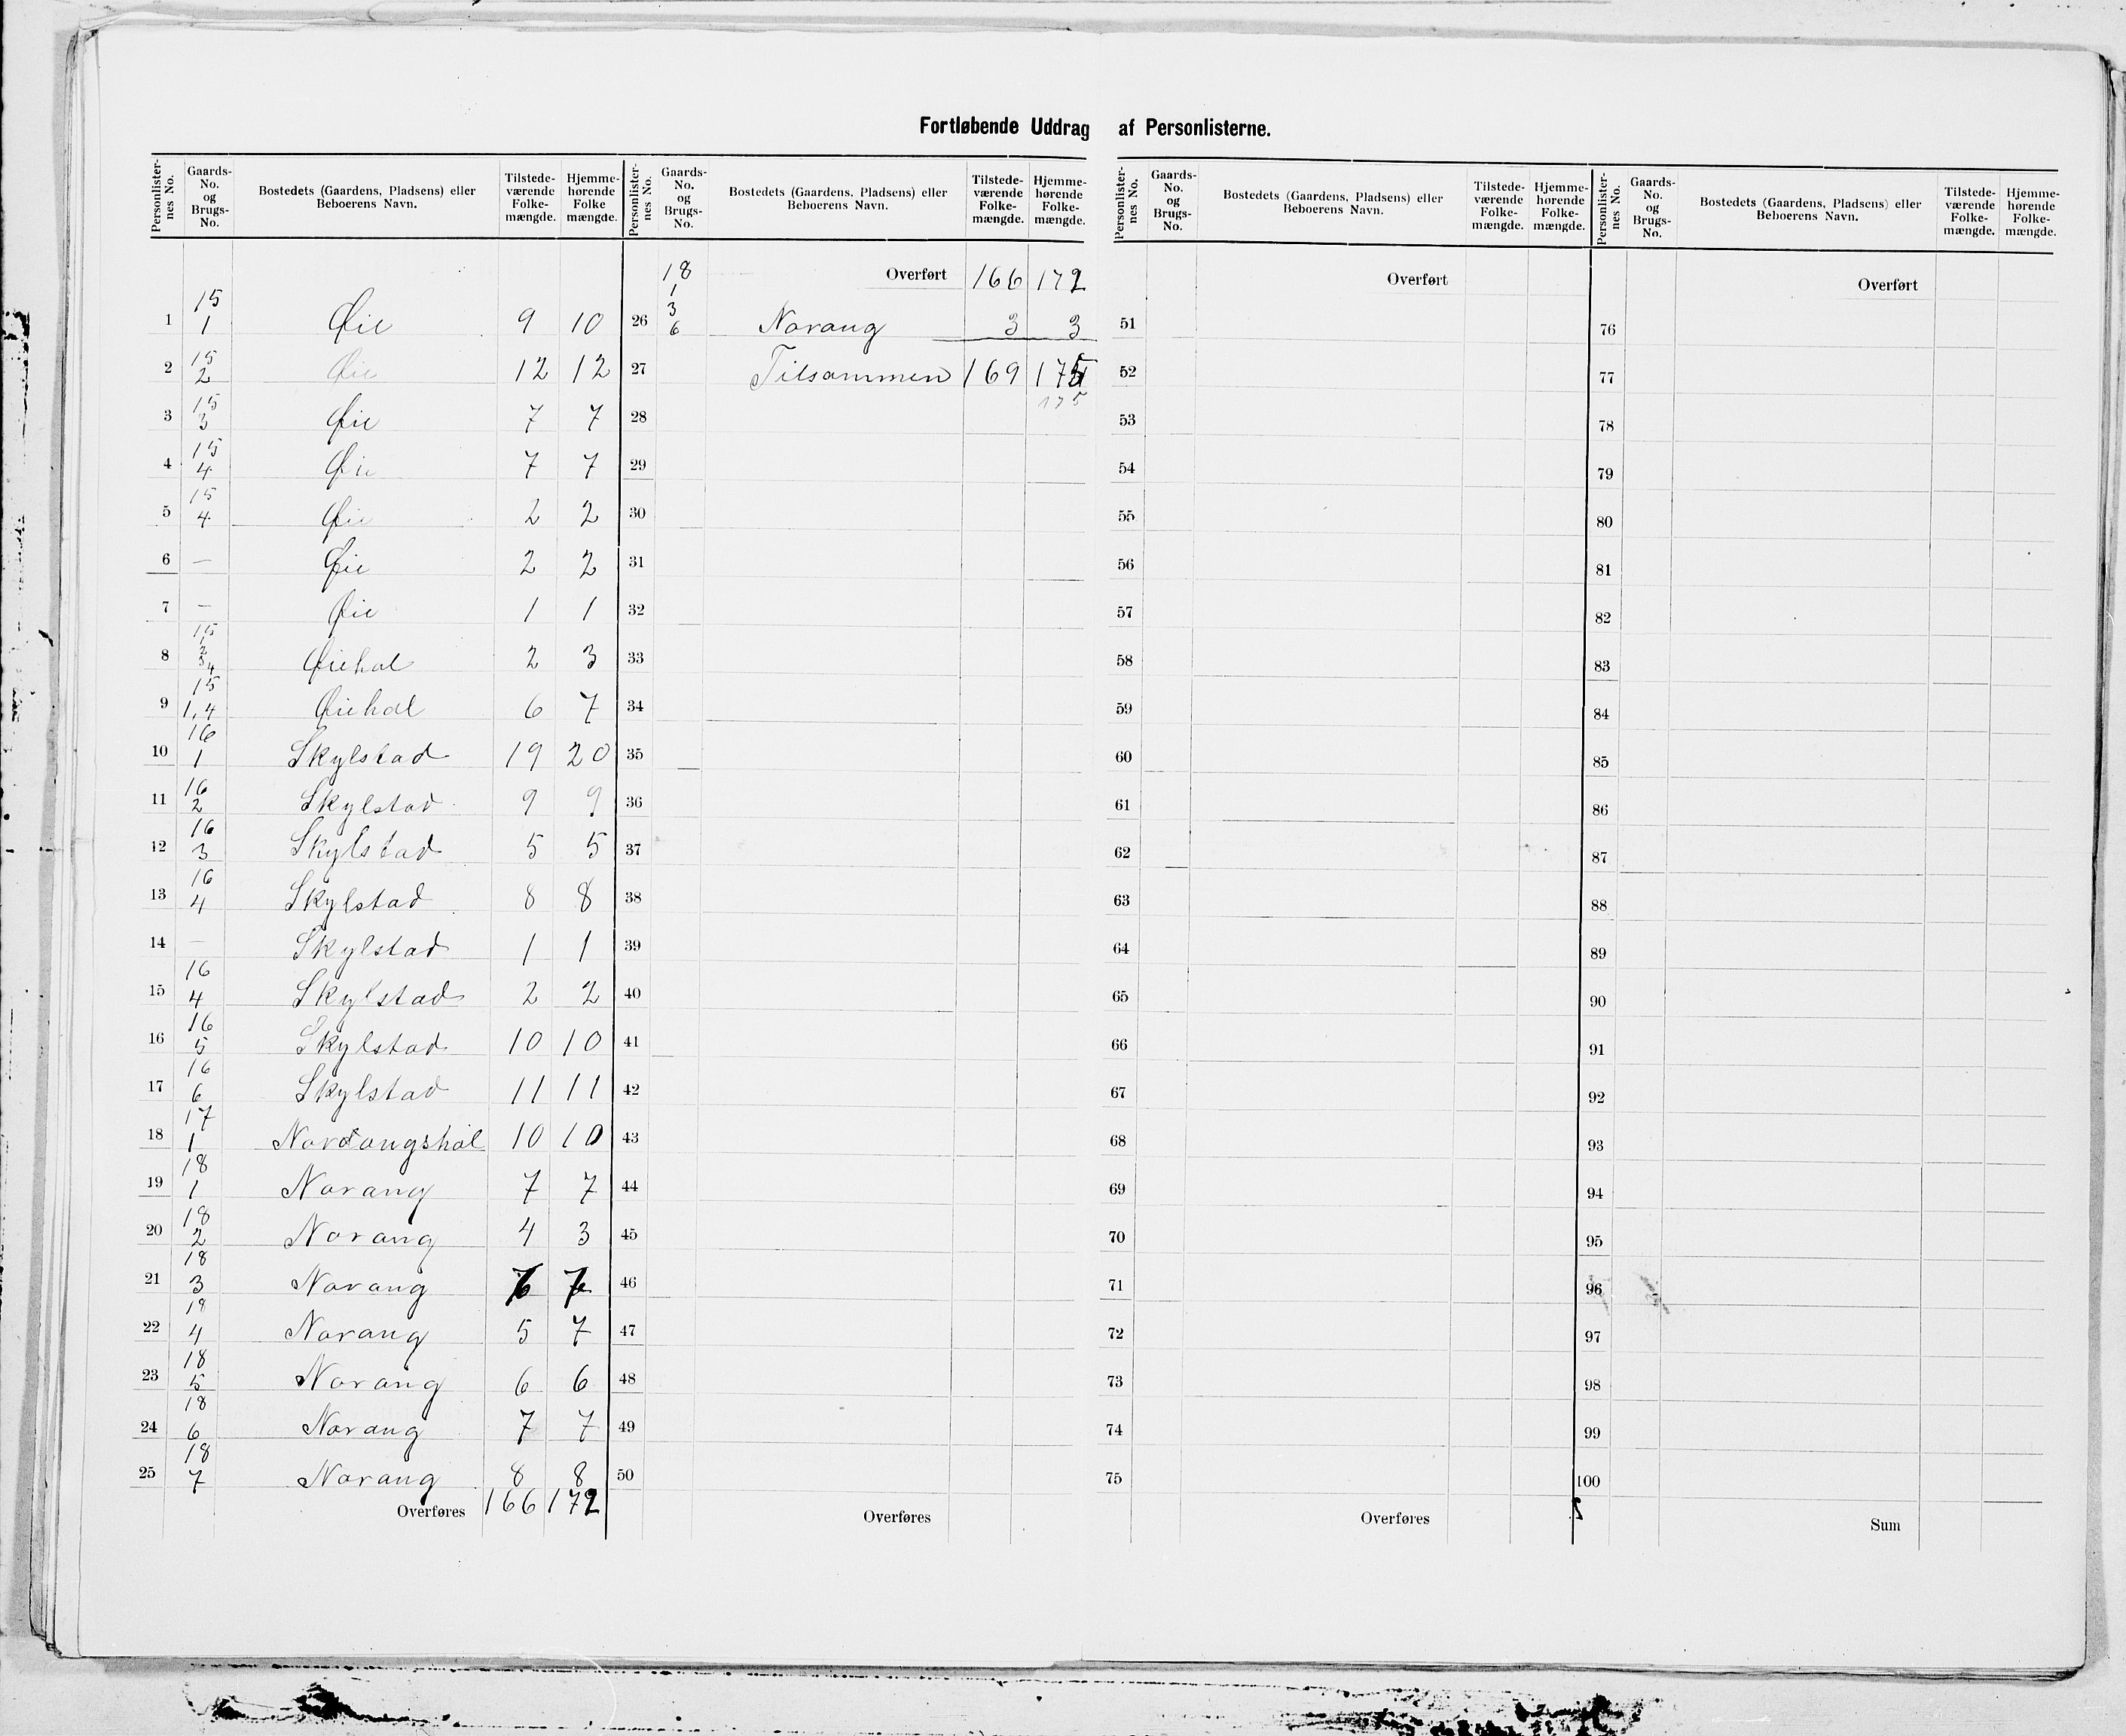 Fortløbende Uddrag af Personlisterne.
Personlisternes No. Gaards-No. og Brugs-No. Bostedets (Gaardens, Pladsens) eller Beboerens Navn. Tilstedeværende Folkemængde. Hjemmehørende Folkemængde.
1 15 1 Øie 9 10
2 15 2 Øie 12 12
3 15 3 Øie 7 7
4 15 4 Øie 7 7
5 15 4 Øie 2 2
6 — Øie 2 2
7 — Øie 1 1
8 15 2 3 4 Øiehol 2 3
9 15 1,4 Øiehol 6 7
10 16 1 Skylstad 19 20
11 16 2 Skylstad 9 9
12 16 3 Skylstad 5 5
13 16 4 Skylstad 8 8
14 — Skylstad 1 1
15 16 4 Skylstad 2 2
16 16 5 Skylstad 10 10
17 16 6 Skylstad 11 11
18 17 1 Nordangshol 10 10
19 18 1 Norang 7 7
20 18 2 Norang 4 3
21 18 3 Norang 6 6
22 18 4 Norang 5 7
23 18 5 Norang 6 6
24 18 6 Norang 7 7
25 18 7 Norang 8 8
Overføres 166 172
Personlisternes No. Gaards-No. og Brugs-No. Bostedets (Gaardens, Pladsens) eller Beboerens Navn. Tilstedeværende Folkemængde. Hjemmehørende Folkemængde.
Overført 166 172
26 18 1 3 6 Norang 3 3
27 Tilsammen 169 175
175
28
29
30
31
32
33
34
35
36
37
38
39
40
41
42
43
44
45
46
47
48
49
50
Overføres
Personlisternes No. Gaards-No. og Brugs-No. Bostedets (Gaardens, Pladsens) eller Beboerens Navn. Tilstedeværende Folkemængde. Hjemmehørende Folkemængde.
Overført
51
52
53
54
55
56
57
58
59
60
61
62
63
64
65
66
67
68
69
70
71
72
73
74
75
Overføres
Personlisternes No. Gaards-No. og Brugs-No. Bostedets (Gaardens, Pladsens) eller Beboerens Navn. Tilstedeværende Folkemængde. Hjemmehørende Folkemængde.
Overført
76
77
78
79
80
81
82
83
84
85
86
87
88
89
90
91
92
93
94
95
96
97
98
99
100
Sum